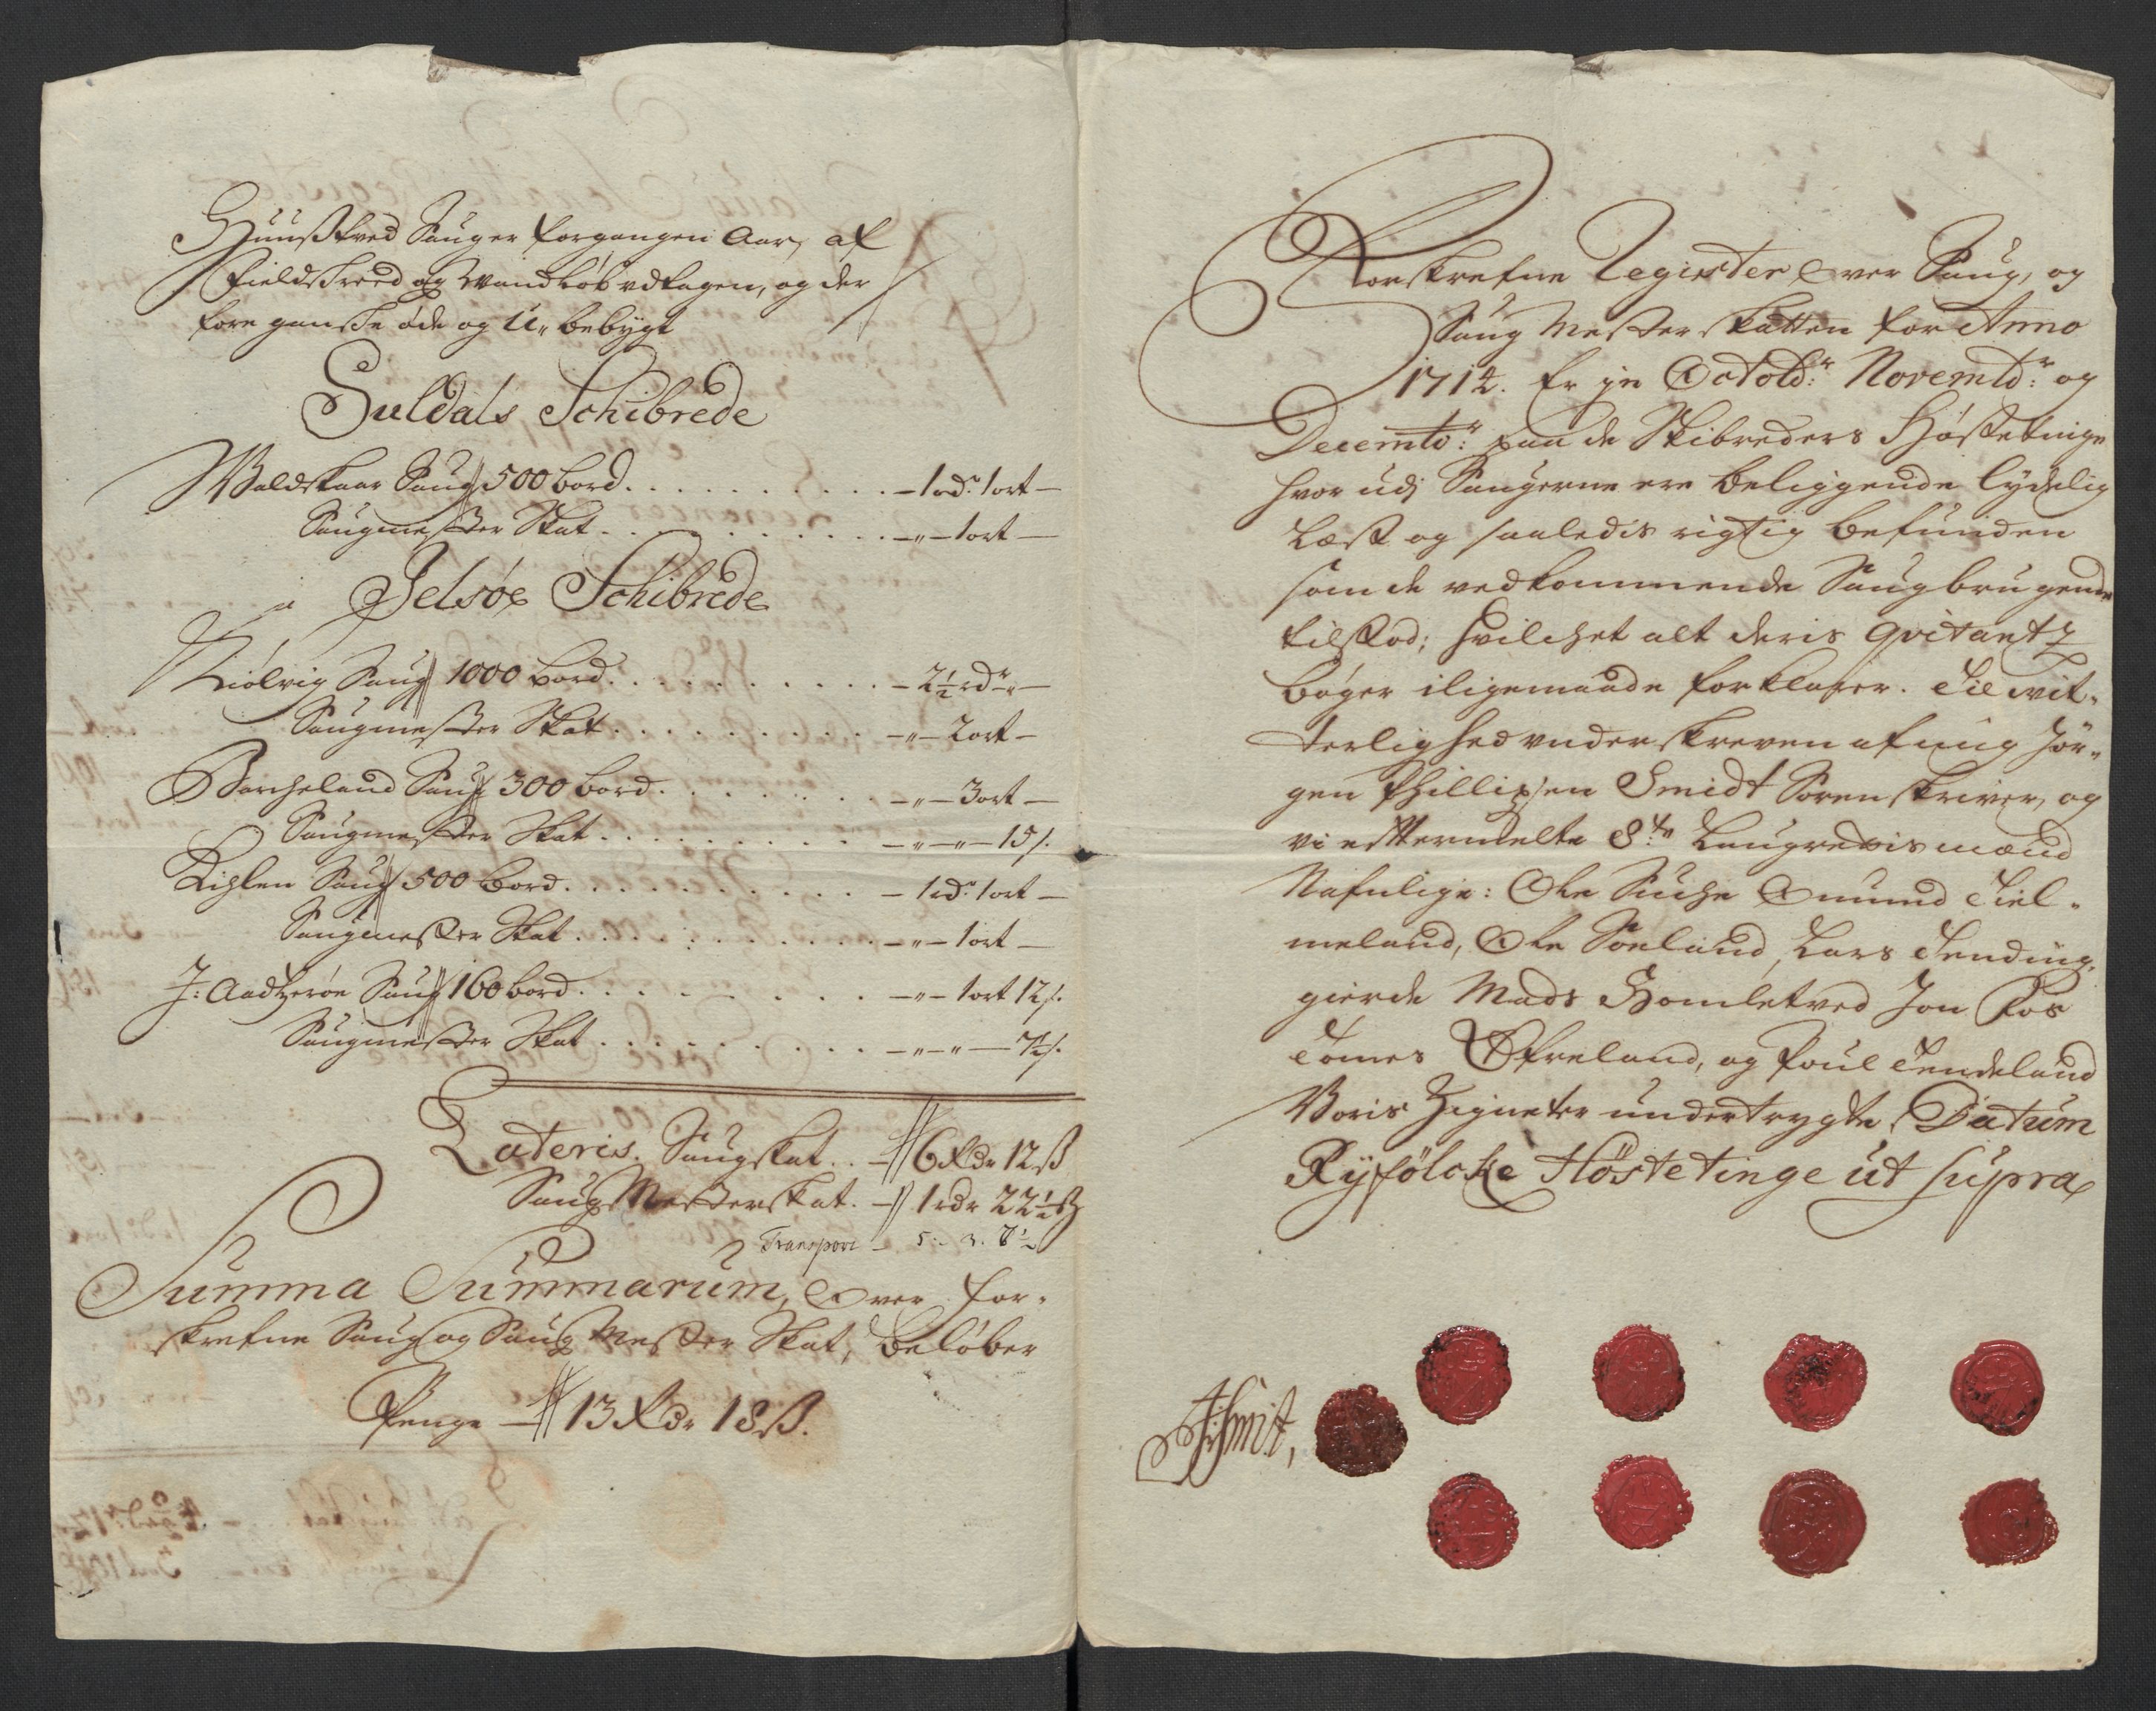 Huusstved Sauger forgangen Aar, af
Fieldskreed og Wandløb udtagen, og der
fore ganske øde og U-bebygt
Suldals Schibrede
Waldskaar Saug 500 bord . . . – 1 rd.r 1 ort –
Saugmester Skat . . . – „ – 1 ort –
Jelsøe Schibrede
Kiølvig Saug 1000 bord . . . – 2½ rdr „ –
Saugmester Skat . . . – „ – 2 ort –
Barcheland Saug 300 bord . . . – „ – 3 ort –
Saugmester Skat . . . – „ – „ – 15 s.
Kihlen Saug 500 bord . . . – 1 rd. 1 ort –
Saugmester Skat . . . – „ – 1 ort –
J: Aadtzerøn Saug 160 bord . . . – „ – 1 ort 12 s.
Saugmester Skat . . . – „ – „ – 7½ s.
Lateris. Saugskat . . – 6 Rdr 12 ß
Saug Mesterskat . – 1 rdr 22½ ß
Transport – 5 - 3. 7½
Summa Summarum, Over for-
skrefne Saug og Saug Mester Skat, beløber
Penge – 13 Rdr 18 ß.
Forskrefne Register Over Saug, og
Saug Mester skatten for Anno
1714. Er jn Octobr: Novembr: og
Decembr: paa de Skibreders Høstetinge
hvor udj Saugerne ere beliggende lydelig
Læst og saaledis rigtig befunden
som de vedkommende Saugbrugende
tilstod; hvilchet alt deris Qvitantz
bøger iligemaade forklarer. Til vit-
terlighed underskreven af mig Jør-
gen Phillipsen Smidt Sorenskriver, og
vi efttermelte 8te Laugrettis mænd
Nafnlige: Ole Omund Tiel-
meland, Ole Søeland, Lars Tending,
gierde Mads Homletved Jon Foss
Tomes Øfreland, og Poul Tendeland
Voris Zigneter undertrygte, Datum
Ryfölcke Höstetinge ut supra
Schmit,